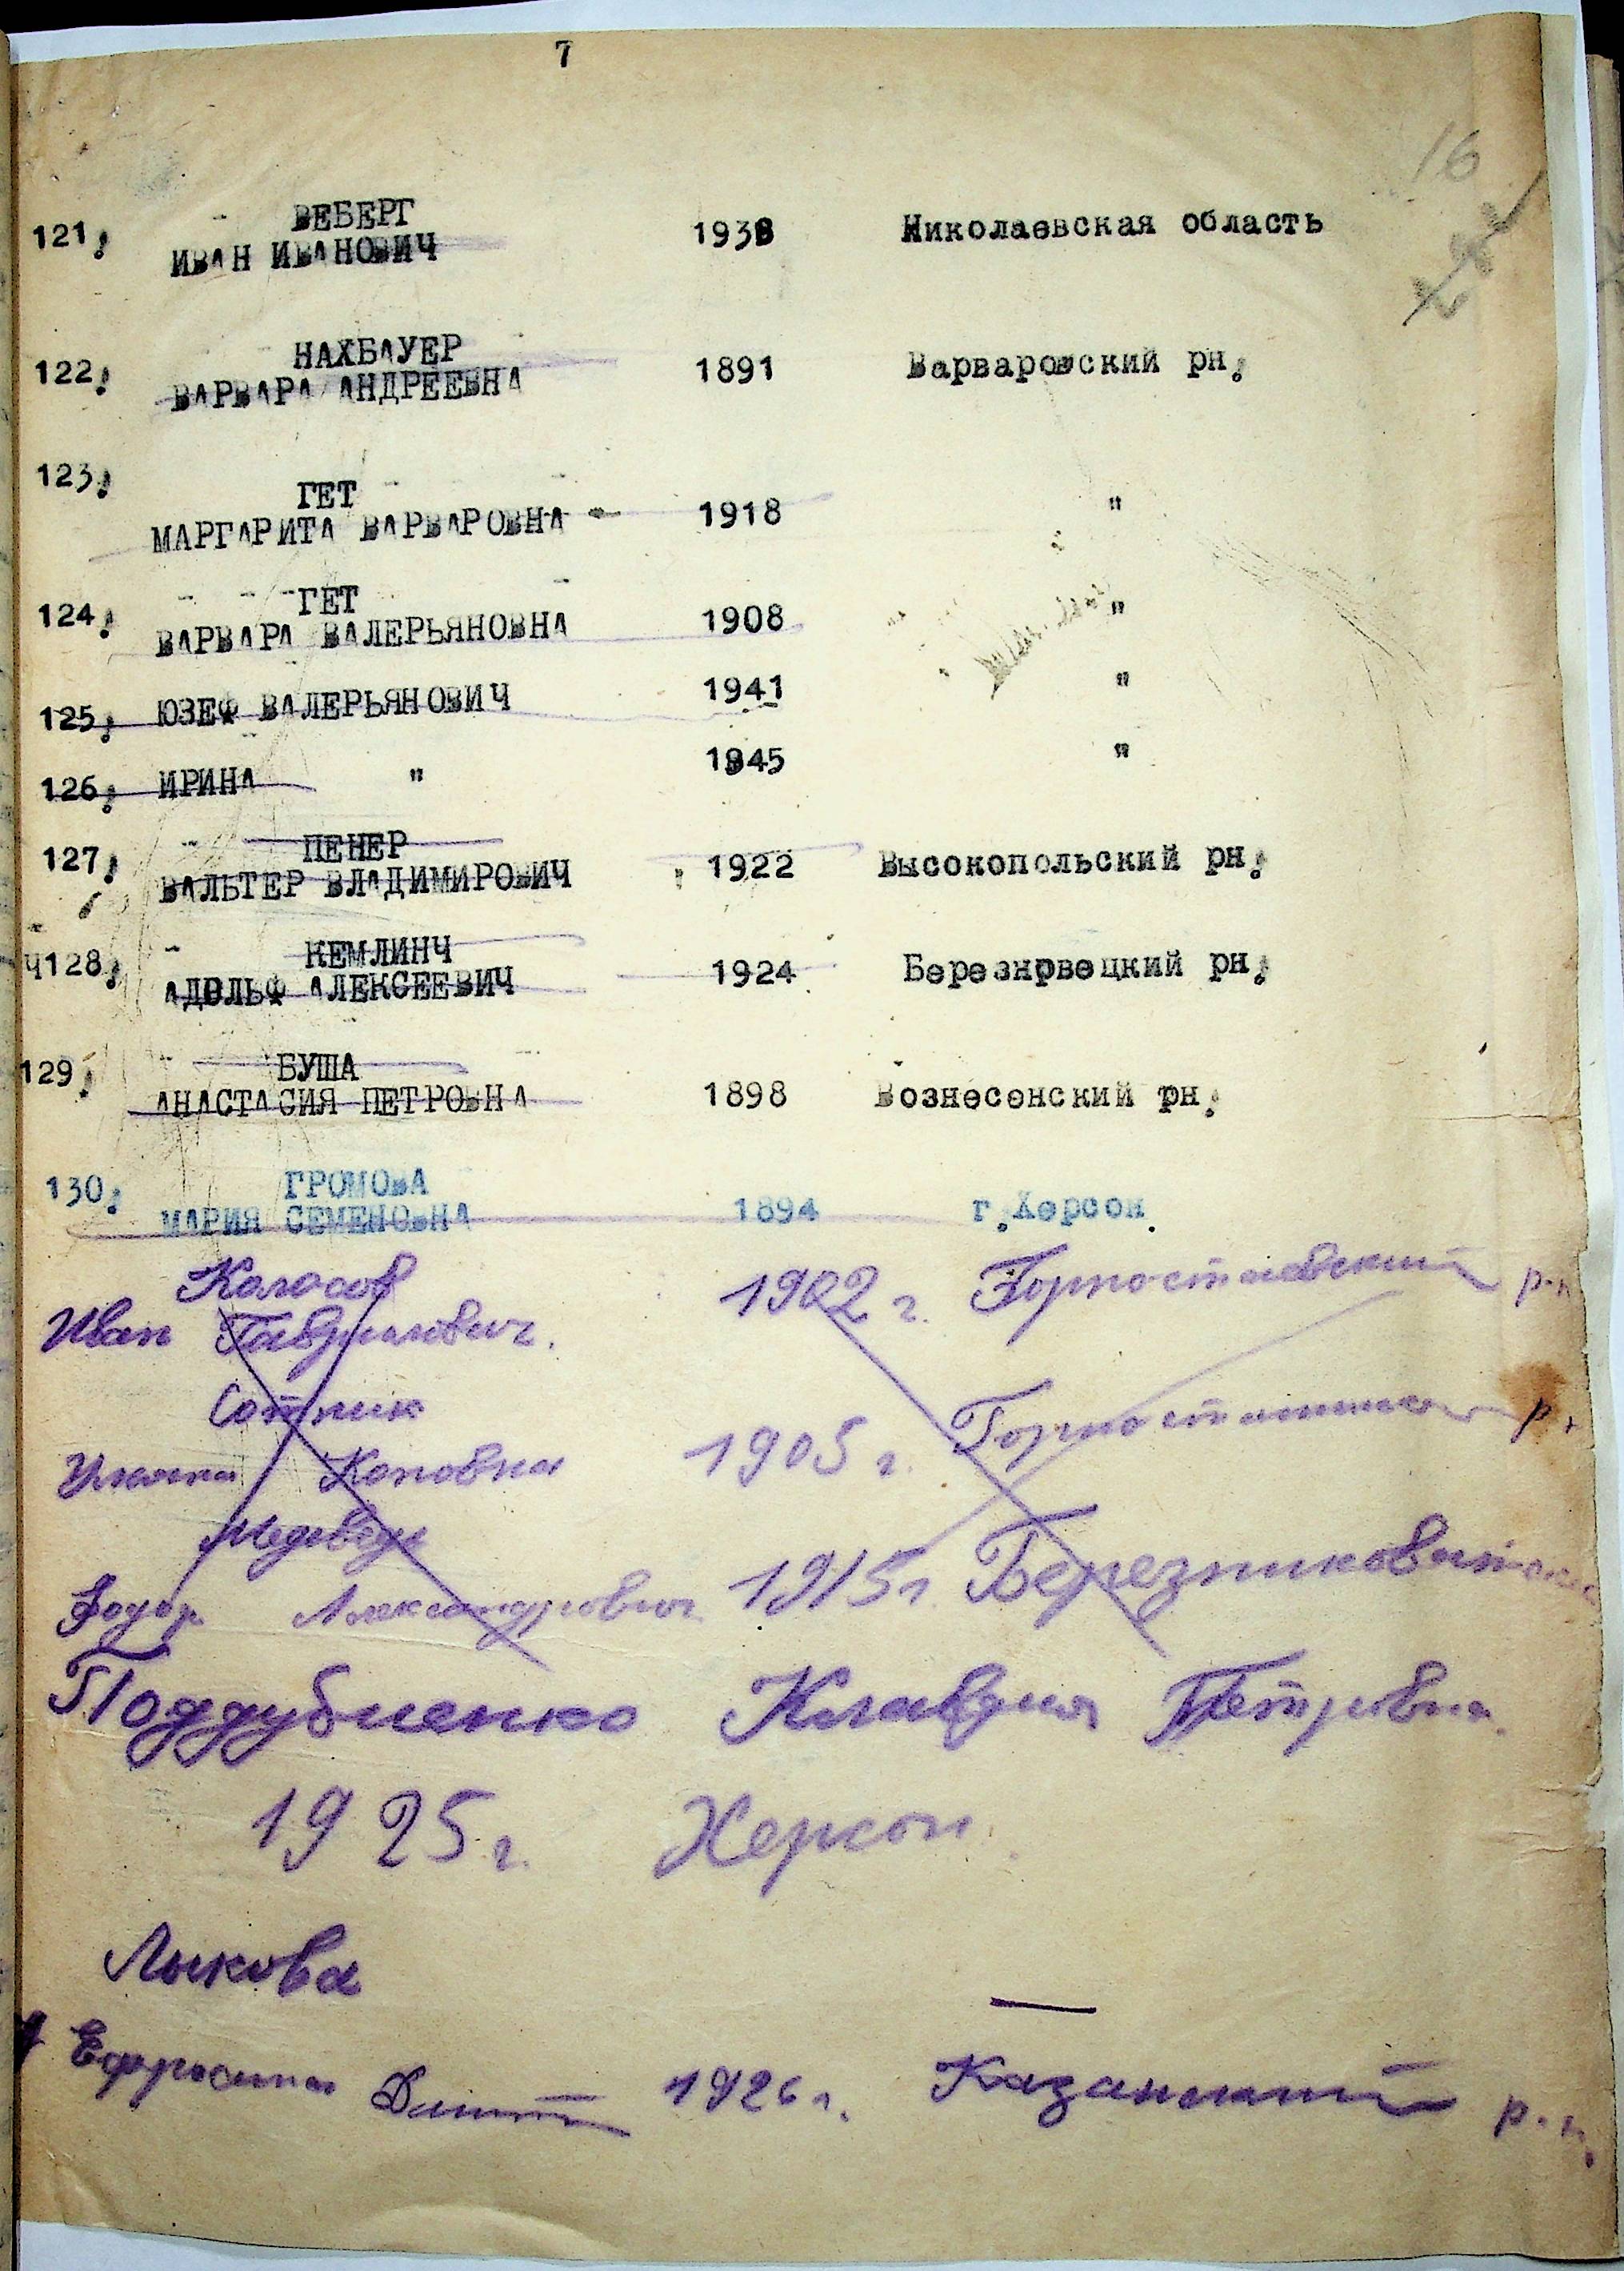 7
16
ВЕБЕРГ
121. ИВАН ИВАНОВИЧ 1938 Николаевская область
НАХБАУЕР
122. ВАРВАРА АНДРЕЕВНА 1891 Варваровский рн.
123.
ГЕТ
МАРГАРИТА ВАРВАРОВНА 1918 "
ГЕТ
124. ВАРВАРА ВАЛЕРЬЯНОВНА 1908 "
125. ЮЗЕФ ВАЛЕРЬЯНОВИЧ 1941 "
126. ИРИНА " 1945 "
ПЕНЕР
127. ВАЛЬТЕР ВЛАДИМИРОВИЧ 1922 Высокопольский рн.
КЕМЛИНЧ
Ч128. АДОЛЬФ АЛЕКСЕЕВИЧ 1924 Березнрвецкий рн.
БУША
129. АНАСТАСИЯ ПЕТРОВНА 1898 Вознесенский рн.
ГРОМОВА
130. МАРИЯ СЕМЕНОВНА 1894 г.Херсон.
Колосов
Иван Гаврилович. 1902 г. Горностаевский р-н
Сотник
Коповна 1905 г. р-н
Медведь
Федор Александрович 1915 г.
Поддубненко Клавдия Петровна.
1925 г. Херсон.
Лыкова
Ефросина Дмит 1926 г. Казанский р-н.